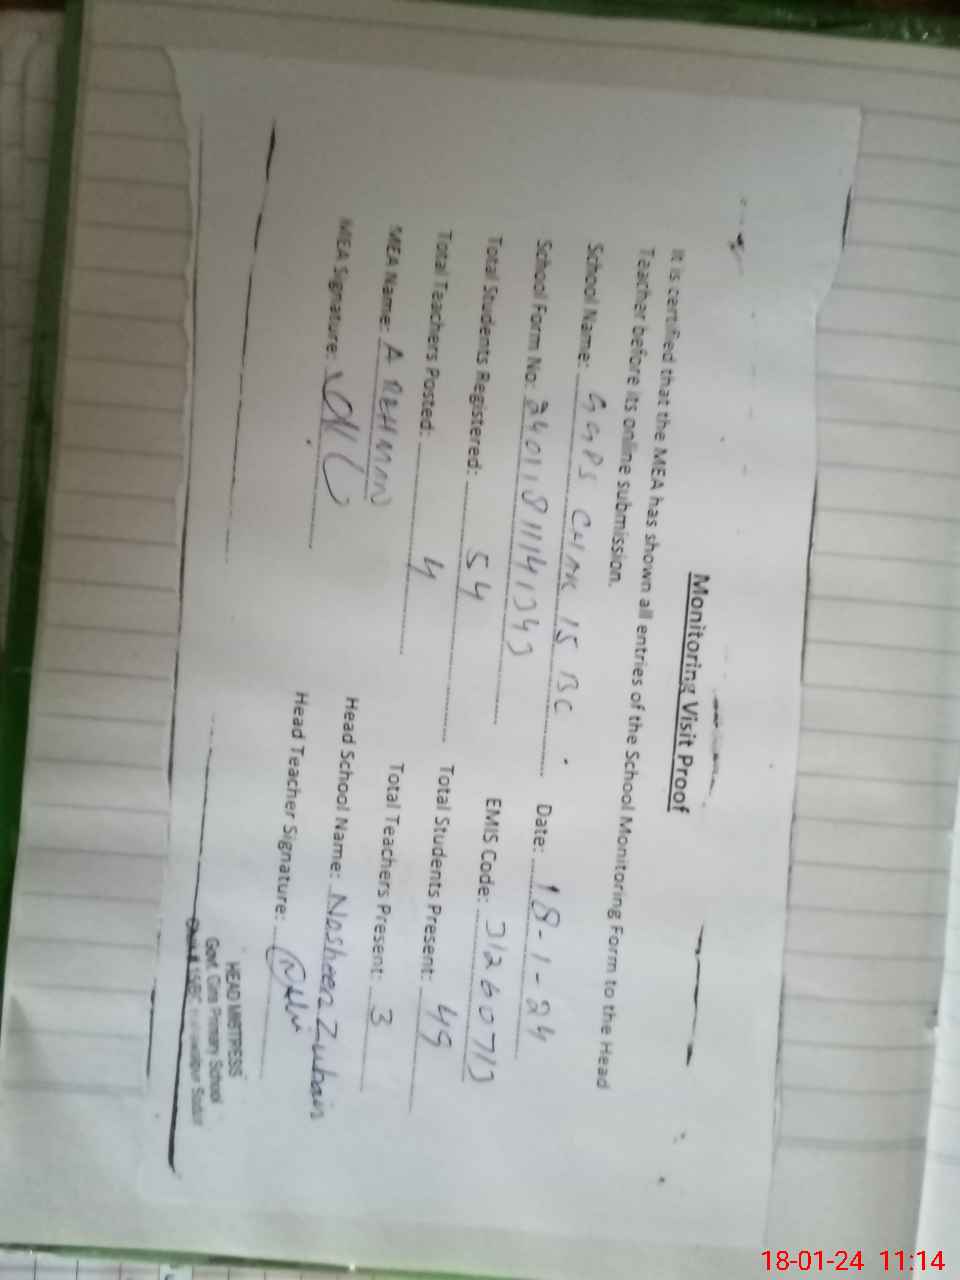 Monitoring Visit Proof
It is certified that the MEA has shown all entries of the School Monitoring Form to the Head
Teacher before its online submission.
School Name: GGPS CHAK 15 BC Date: 18-1-24
School Form No: EMIS Code: 31260713
Total Students Registered: 54 Total Students Present: 49
Total Teachers Posted: 4 Total Teachers Present: 3
MEA Name: A REHMAN Head School Name: Nosheen Zubair
MEA Signature: Head Teacher Signature:
HEAD MISTRESS
Govt. Girls Primary School
Chak # 15/BC
18-01-24 11:14